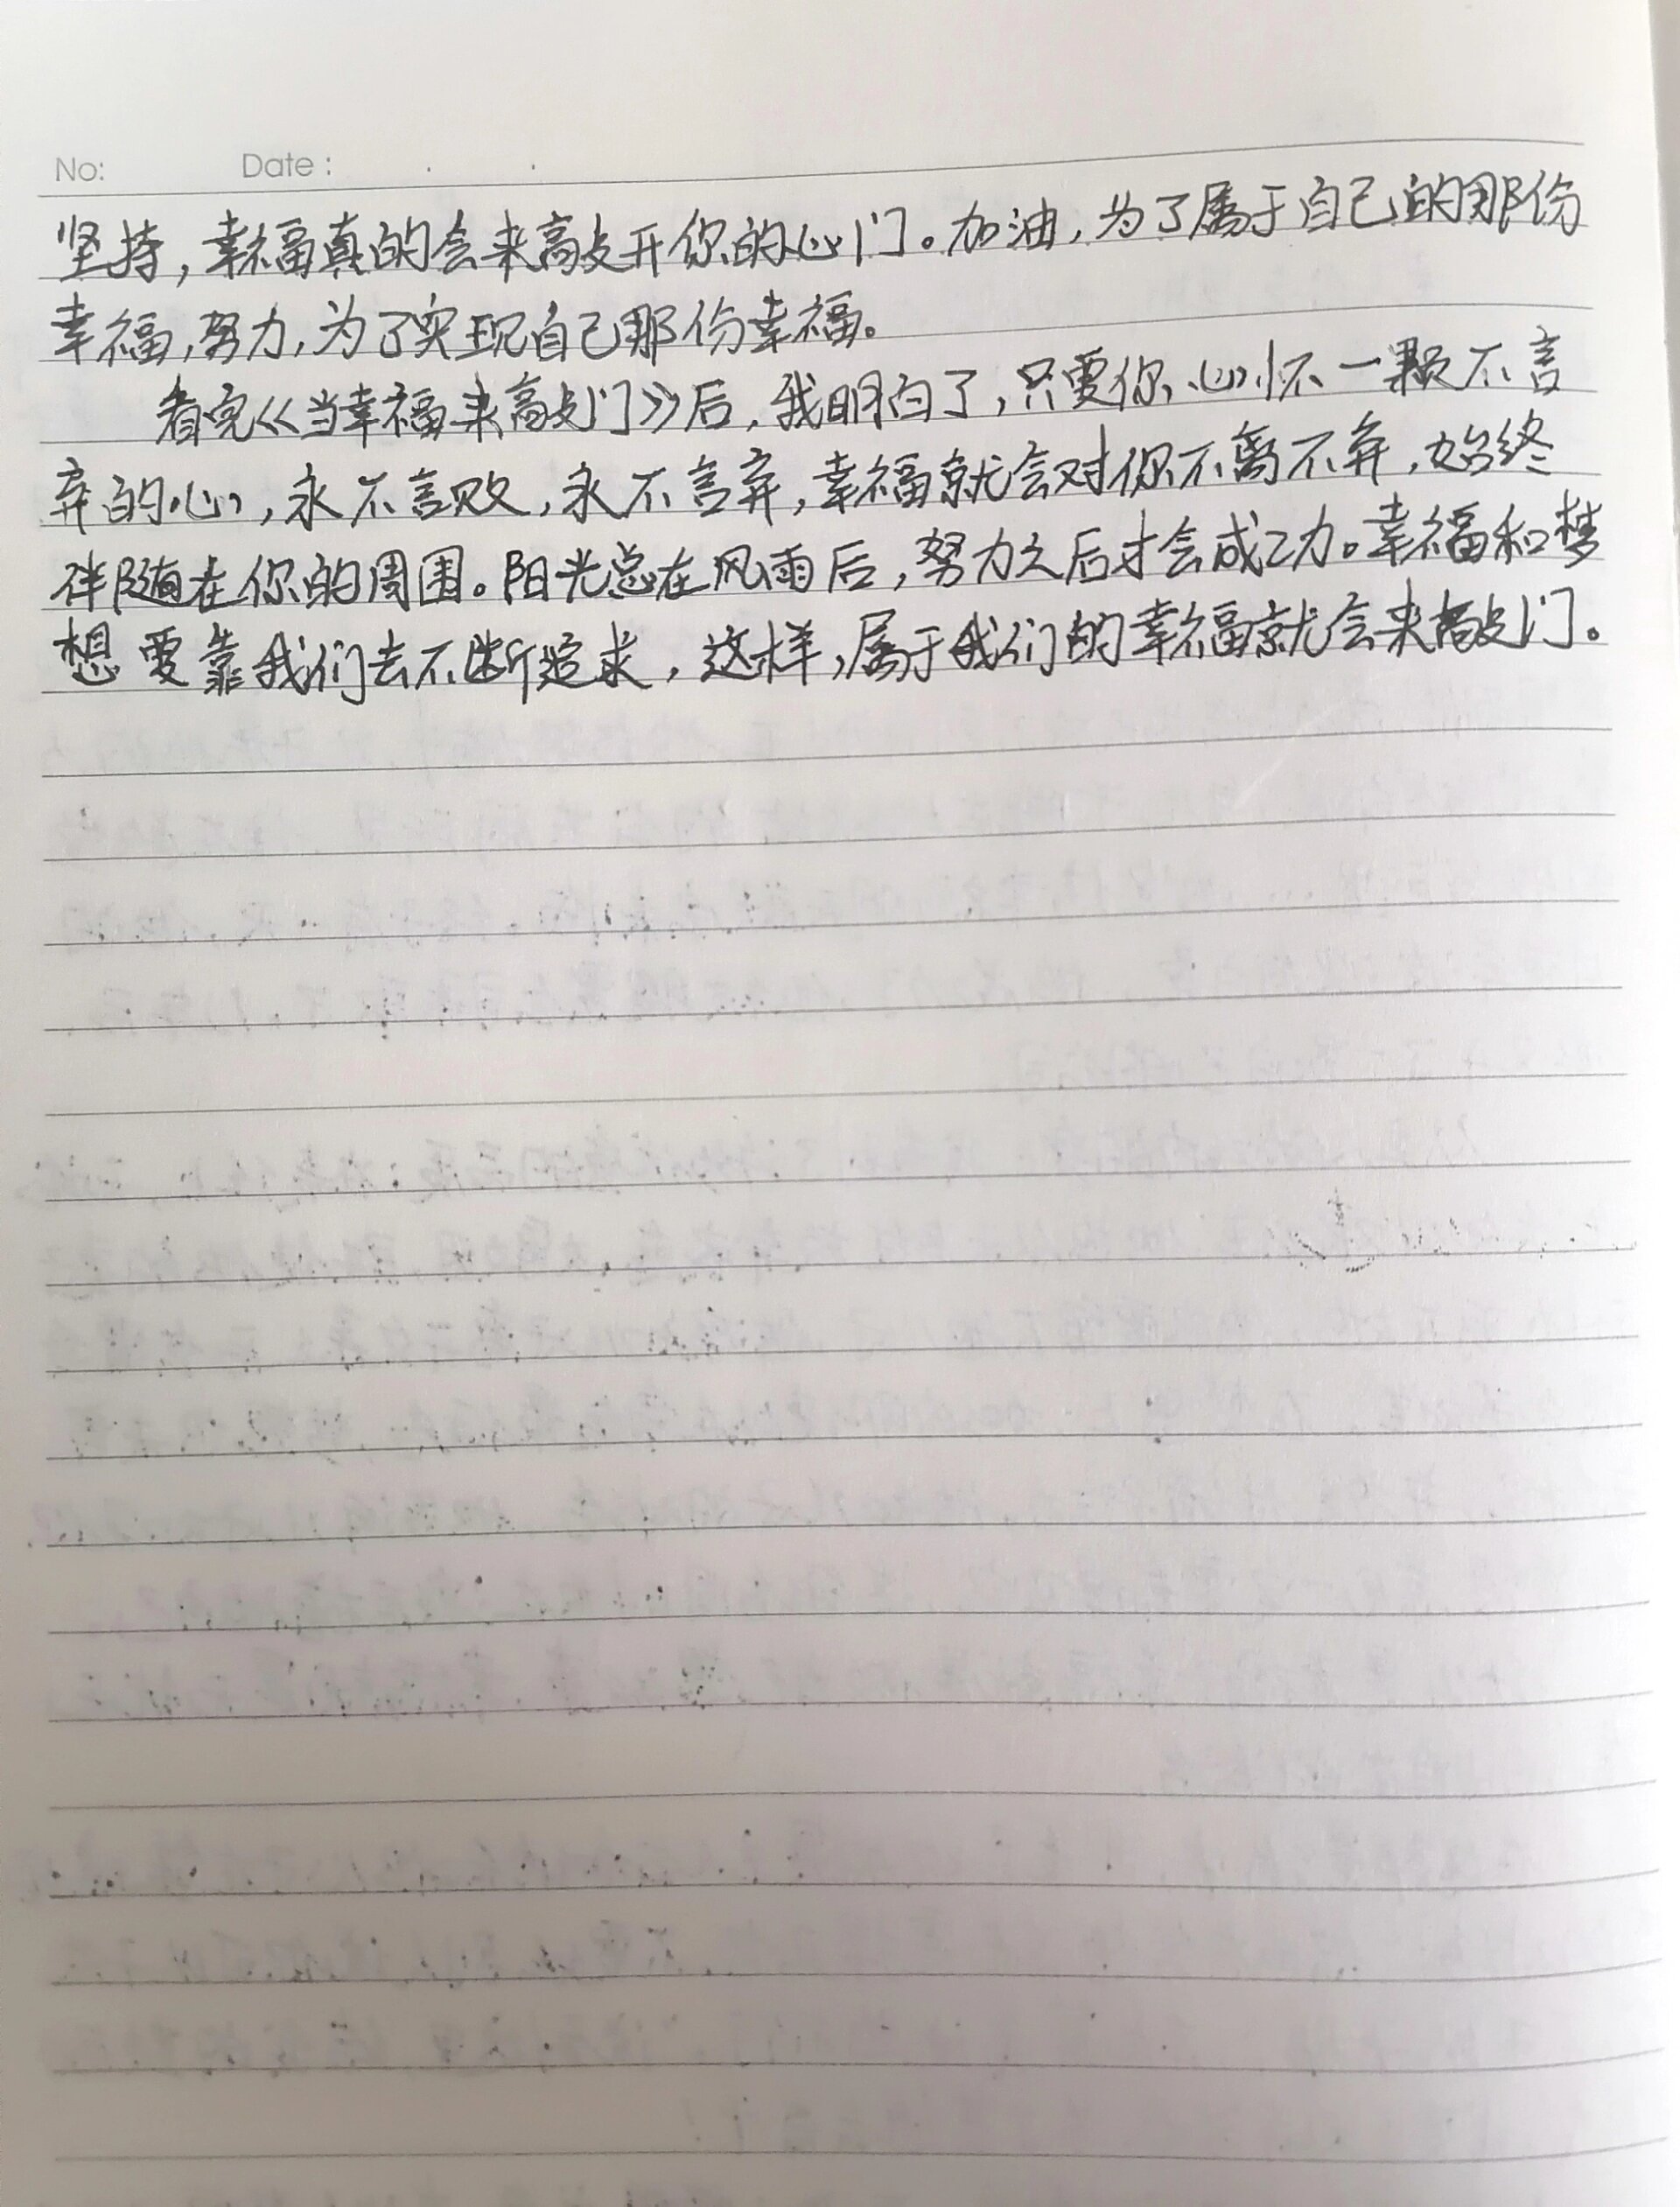 No: Date: . .
坚持,幸福真的会来敲开你的心门。加油,为了属于自己的那份
幸福,努力,为了实现自己那份幸福。
看完《当幸福来敲门》后,我明白了,只要你心怀一颗不言
弃的心,永不言败,永不言弃,幸福就会对你不离不弃,始终
伴随在你的周围。阳光总在风雨后,努力之后才会成功。幸福和梦
想要靠我们去不断追求,这样,属于我们的幸福就会来敲门。